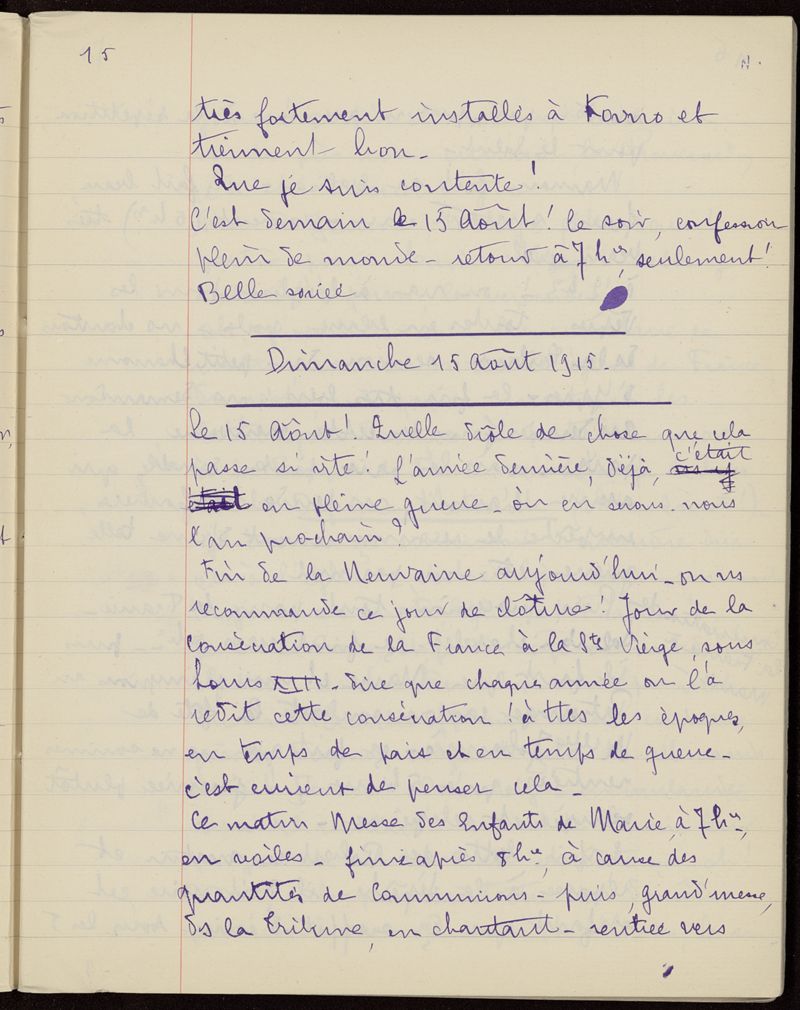 15
très fortement installés à Kovno et
tiennent bon -
Que je suis contente !
C'est demain le 15 Août ! le soir, confession
plein de monde - retour à 7 hres, seulement !
Belle soirée
Dimanche 15 Août 1915.
Le 15 Août ! Quelle drôle de chose que cela
passe si vite ! L'année dernière, déjà, c'était
en pleine guerre - où en serons-nous
l'an prochain ?
Fin de la Neuvaine aujourd'hui - on ns
recommande ce jour de clôture ! Jour de la
consécration de la France à la Ste Vierge, sous
Louis XIII - dire que chaque année on l'a
redit cette consécration ! à ttes les époques,
en temps de paix et en temps de guerre -
c'est curieux de penser cela -
Ce matin - Messe des Enfants de Marie, à 7 hres,
en voiles - finie après 8 hres, à cause des
quantités de Communions - puis, grand'messe,
ds la Tribune, en chantant - rentrée vers